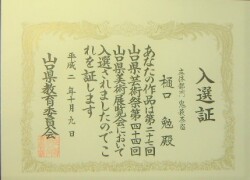 入選証
樋口 勉殿
あなたの作品は第三十七回
山口県芸術祭第四十四回
山口県美術展覧会において
入選されましたのでこ
れを証します
平成二年十月九日
山口県教育委員会